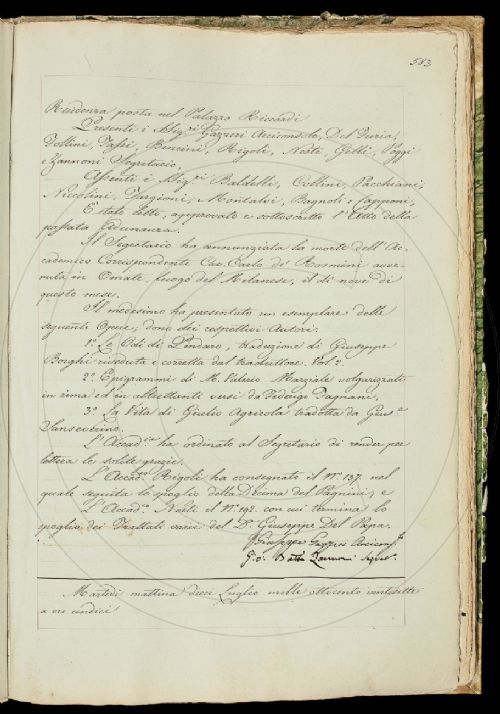 583
Residenza posta nel Palazzo Riccardi
Presenti i Sig.ri Gazzeri Arciconsolo, Del Furia,
Follini, Tassi, Bencini, Rigoli, Nesti, Gelli, Poggi
e Zannoni Segretario.
Assenti i Sig.ri Baldelli, Collini, Pacchiani,
Niccolini, Targioni, Montalvi, Bagnoli e Capponi,
È stato letto, approvato e sottoscritto l'Atto della
passata Adunanza.
Il Segretario ha annunziata la morte dell'Ac-
cademico Corrispondente Cav. Carlo de' Rosmini avve-
nuta in Omate, luogo del Milanese, il dì nove di
questo mese.
Il medesimo ha presentato un esemplare delle
seguenti Opere, dono dei rispettivi Autori.
1.a Le Odi di Pindaro, traduzione di Giuseppe
Borghi riveduta e corretta dal traduttore. Vol. 2.
2.a Epigrammi di M. Valerio Marziale volgarizzati
in rima ed in altrettanti versi da Federigo Pagnani.
3.a La Vita di Giulio Agricola tradotta da Gius.e
Sanseverino.
L'Accad.ia ha ordinato al Segretario di render per
lettera le solite grazie.
L'Accad.co Rigoli ha consegnato il N.o 137. nel
quale seguita lo spoglio della Decima del Pagnini; e
L'Accad.o Nesti il N.o 192. con cui termina lo
spoglio dei Trattati varii del D. Giuseppe Del Papa.
Giuseppe Gazzeri Arcicons.o
Gio: Batta Zannoni Segret.
Martedì mattina dieci Luglio mille ottocento ventisette
a ore undici